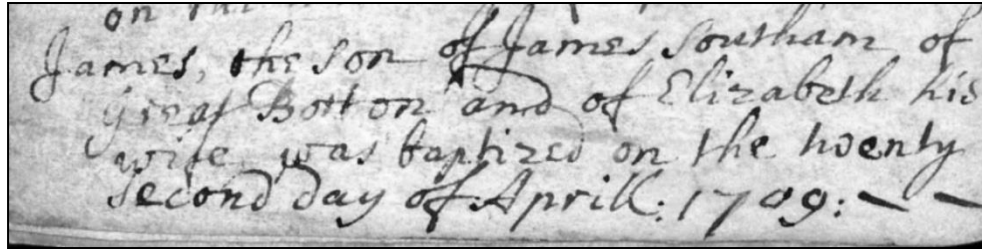 on the
James, the son of James Southam of
Great Botton and of Elizabeth his
wife, was baptized on the twenty
second day of Aprill: 1709: — —